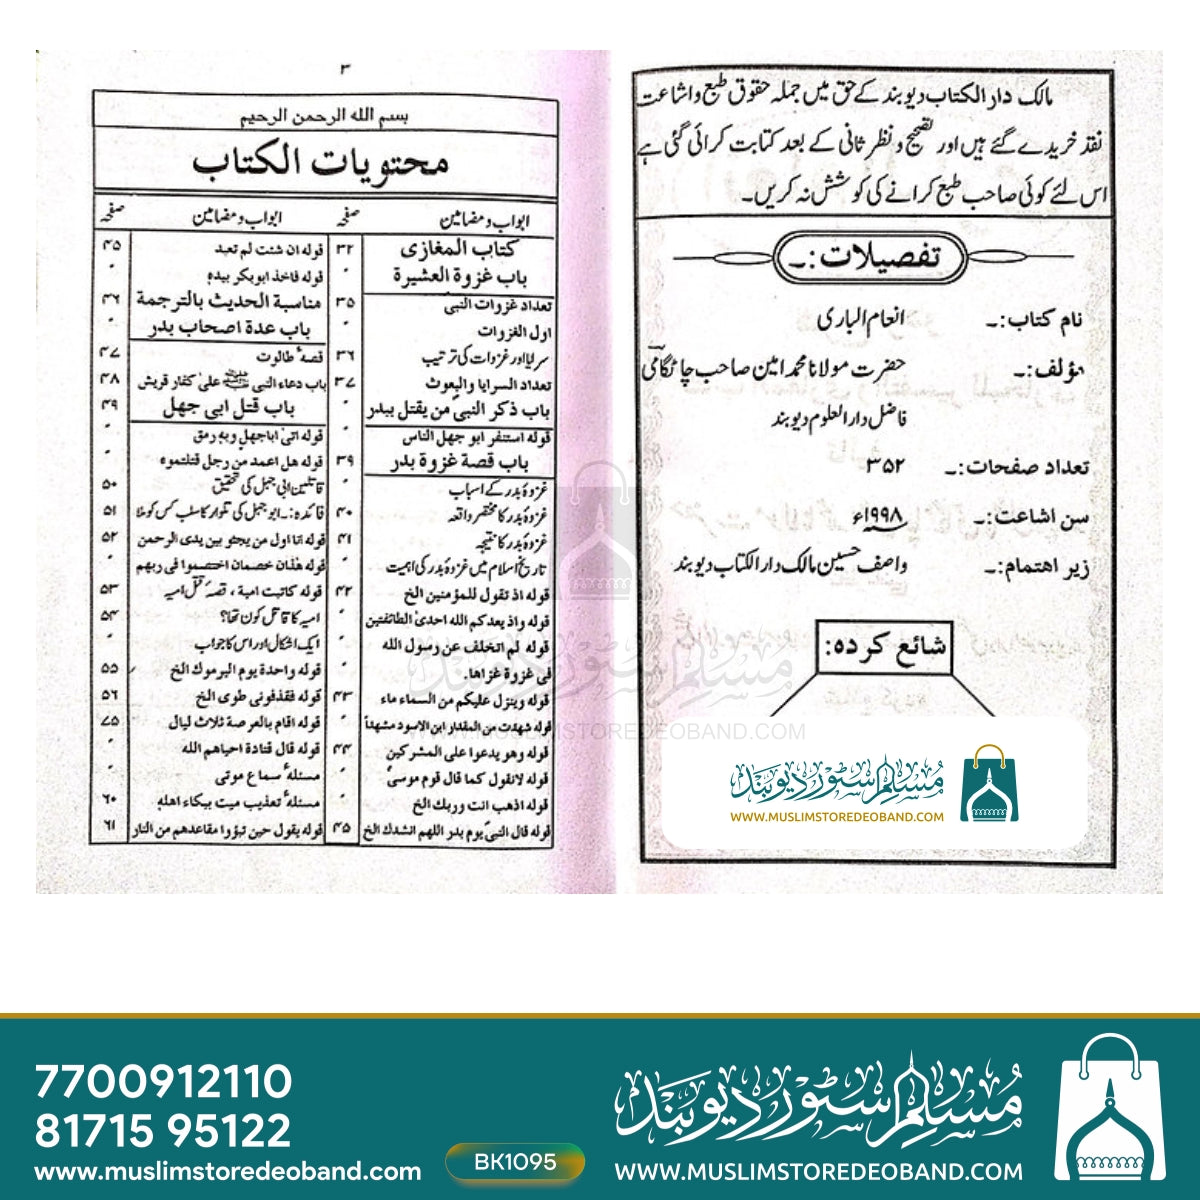 مالک دار الکتاب دیوبند کے حق میں جملہ حقوق طبع و اشاعت
نقد خریدے گئے ہیں اور تصحیح و نظر ثانی کے بعد کتابت کرائی گئی ہے
اس لئے کوئی صاحب طبع کرانے کی کوشش نہ کریں۔
تفصیلات:۔
نام کتاب:۔ انعام الباری
مؤلف:۔ حضرت مولانا محمد امین صاحب چاٹگامی
فاضل دار العلوم دیوبند
تعداد صفحات:۔ ۳۵۲
سن اشاعت:۔ ۱۹۹۸ء
زیر اهتمام:۔ واصف حسین مالک دار الکتاب دیوبند
شائع کرده:
مسلم سٹور دیوبند
WWW.MUSLIMSTOREDEOBAND.COM
۳
بسم الله الرحمن الرحيم
محتويات الكتاب
ابواب و مضامین صفحہ
كتاب المغازى ۳۲
باب غزوة العشيرة "
تعداد غزوات النبی ۳۵
اول الغزوات "
سرایا اور غزوات کی ترتیب ۳۶
تعداد السرايا والبعوث ۳۷
باب ذكر النبى من يقتل ببدر "
قوله استنفر ابو جهل الناس "
باب قصة غزوة بدر ۳۹
غزوۂ بدر کے اسباب "
غزوۂ بدر کا مختصر واقعہ ۴۰
غزوۂ بدر کا نتیجہ ۴۱
تاریخ اسلام میں غزوۂ بدر کی اہمیت "
قوله اذ تقول للمؤمنين الخ ۴۲
قوله واذ يعدكم الله احدى الطائفتين "
قوله لم اتخلف عن رسول الله "
فى غزوة غزاها۔
قوله وينزل عليكم من السماء ماء ۴۳
قوله شهدت من المقداد ابن الاسود مشهداً "
قوله وهو يدعوا على المشركين ۴۴
قوله لانقول كما قال قوم موسىٰ "
قوله اذهب انت وربك الخ "
قوله قال النبى يوم بدر اللهم انشدك الخ ۴۵
ابواب و مضامین صفحہ
قوله ان شئت لم تعبد ۴۵
قوله فاخذ ابوبكر بيده "
مناسبة الحديث بالترجمة ۴۶
باب عدة اصحاب بدر "
قصۂ طالوت ۴۷
باب دعاء النبى ﷺ على كفار قريش ۴۸
باب قتل ابى جهل ۴۹
قوله اتى اباجهل وبه رمق "
قوله هل اعمد من رجل قتلتموه "
قاتلین ابی جہل کی تحقیق ۵۰
فائدہ:۔ ابو جہل کی تلوار کا سلب کس کو ملا ۵۱
قوله انا اول من يجثو بين يدى الرحمن ۵۲
قوله هٰذان خصمان اختصموا فى ربهم "
قوله كاتبت امية ، قصۂ قتل امیہ ۵۳
امیہ کا قاتل کون تھا؟ ۵۴
ایک اشکال اور اس کا جواب "
قوله واحدة يوم اليرموك الخ ۵۵
قوله فقذفونى طوى الخ ۵۶
قوله اقام بالعرصة ثلاث ليال ۷۵
قوله قال قتادة احياهم الله "
مسئلۂ سماع موتى "
مسئلۂ تعذيب ميت ببكاء اهله ۶۰
قوله يقول حين تبوّؤا مقاعدهم من النار ۶۱
WWW.MUSLIMSTOREDEOBAND.COM
7700912110
81715 95122
www.muslimstoredeoband.com
BK1095
مسلم سٹور دیوبند
WWW.MUSLIMSTOREDEOBAND.COM